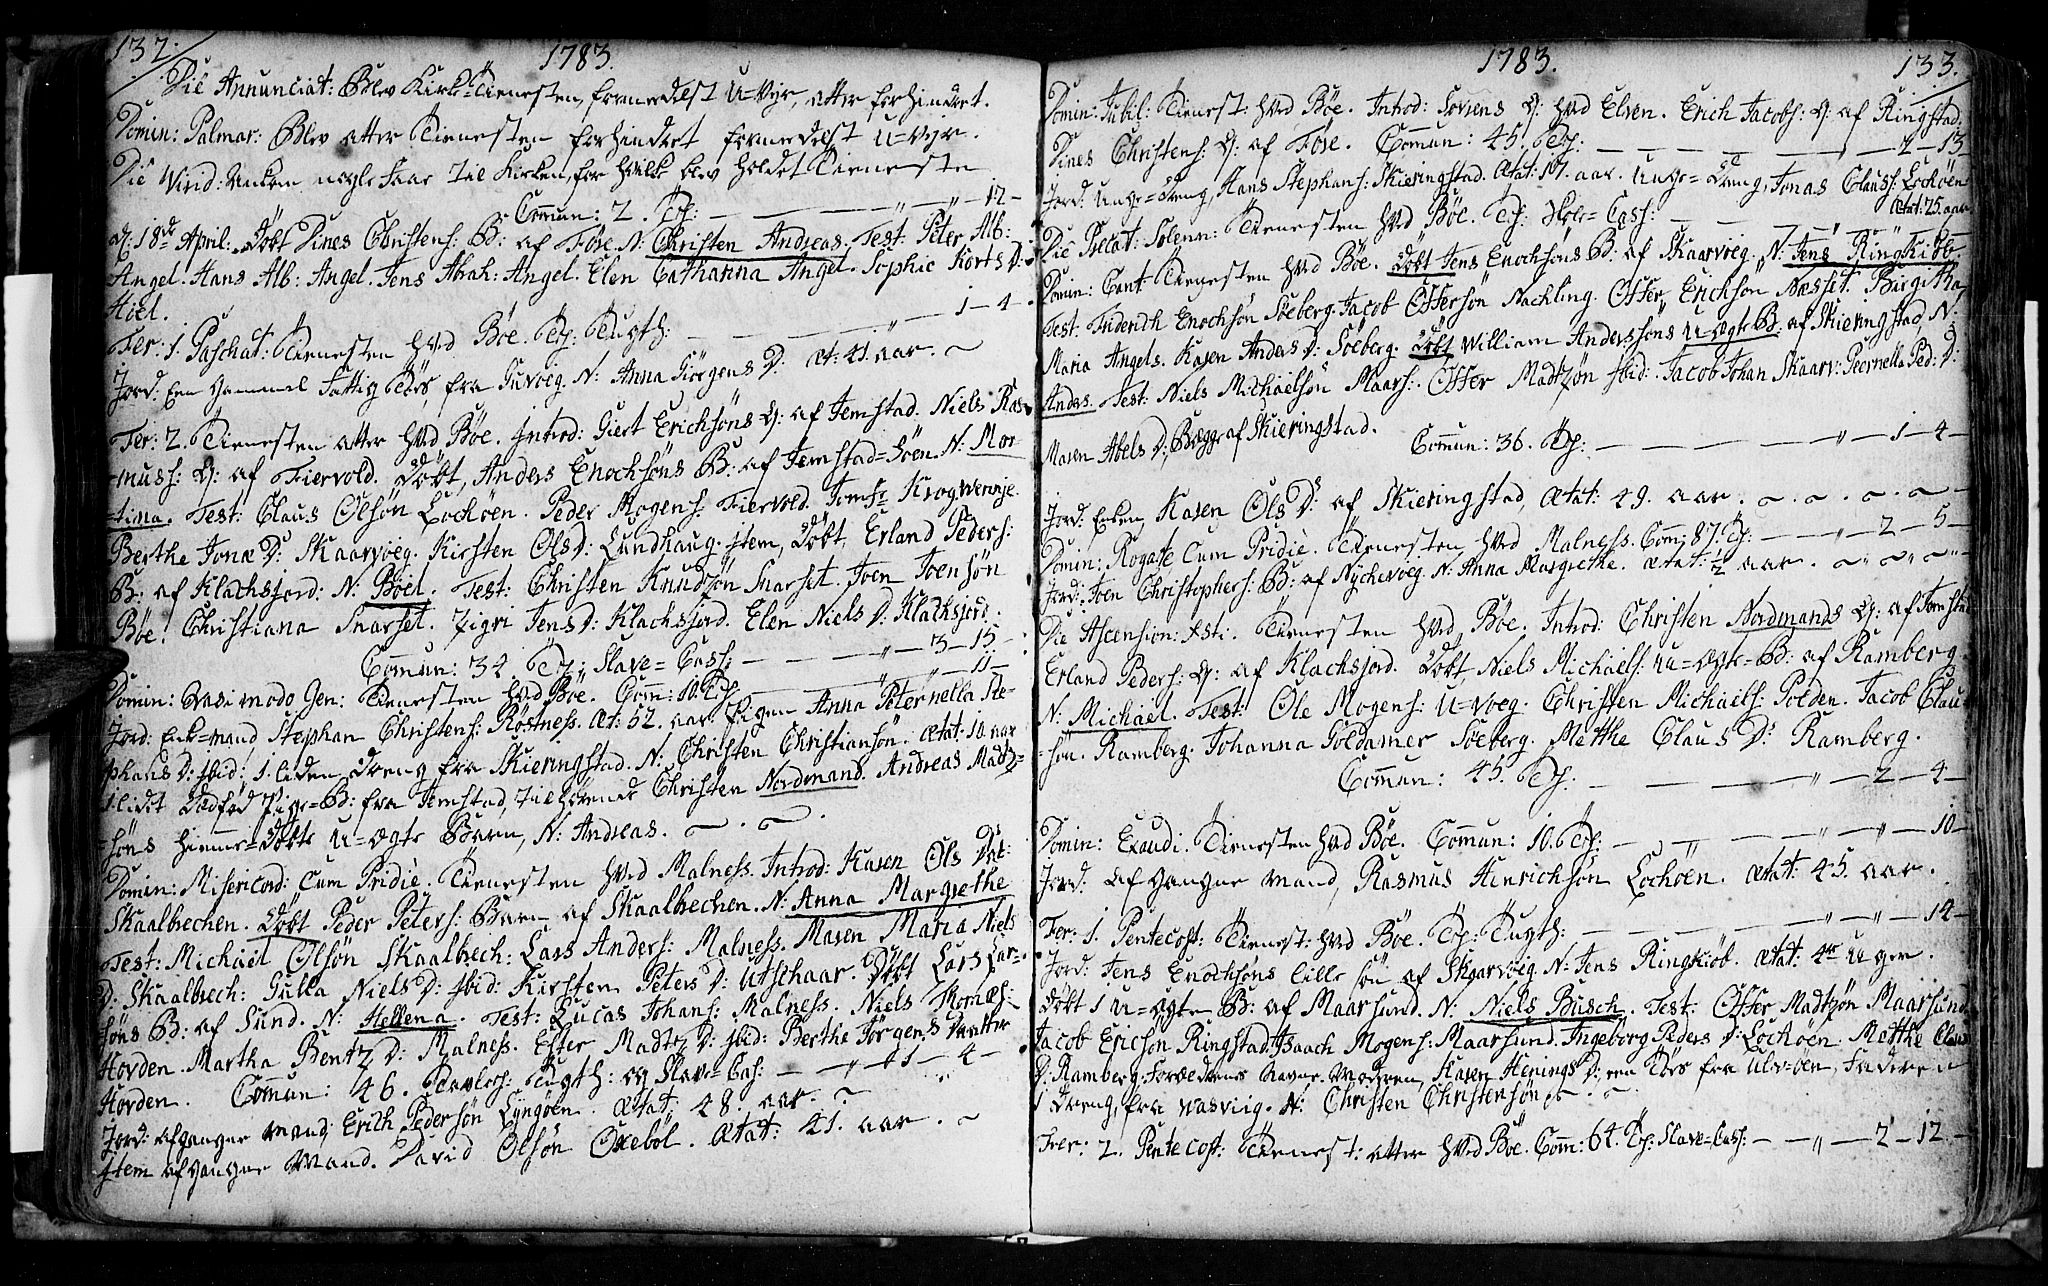 132.
1783.
Die Annunciat: Blev Kirke-Tienesten, formedelst U-Vejr, atter forhindret.
Domin: Palmar: Blev atter Tienesten forhindret formedelst U-vejr.
Die Virid: Ankom nogle faae til Kirken, for hvilke blev holdet Tieneste
Commun: 2. Tf: — — — „ — „ — 12 —
D: 18de April: Döbt Dines Christens: B: af Före. N: Christen Andreas. Test: Peter Alb:
Angel. Hans Alb: Angel. Jens Abrah: Angel. Elen Catharina Angel. Sophie Korts D:
Hiel.
Fer: 1. Paschat: Tienesten hved Böe. Tf: Tugth: — — — „ — 1 — 4 —
Jord: Een gammel fattig Tös, fra Guvog. N: Anna Giörgens D: Æt: 41. aar.
Fer: 2. Tienesten atter hved Böe. Introd: Giert Erichsöns Q: af Jemstad. Niels Ras-
muss: Q: af Fiervold. Döbt, Anders Enochsöns B: af Jemstad-Söen. N: Mor
-tina. Test: Claus Olsön Lochöen. Peder Mogens: Fiervold. Jomfr Krogwennje.
Berthe Jonæ D: Skaarvoeg. Kirsten Ols D: Lundhaug. Item, Döbt, Erland Peders:
B: af Klachsjord: N: Böel. Test: Christen Knudzön Snarset. Joen Joensön
Böe. Christiana Snarset. Zigri Jens D: Klachsjord. Elen Niels D: Klachsjord.
Commun: 34. Tf: Slave-Cass: — — „ — 3 — 15 —
Domin: Qvasimodo Gen: Tienesten hved Böe. Com: 10. Tf: — — — 11 —
Jord: Enke-mand Stephan Christens: Röstness. Æt: 62. aar. Pigen Anna Peternella Ste-
phans D: ibid: 1. liden Dreng fra Skieringstad. N: Christen Christiansön. Ætat: 10. aar.
1. lidet Dödfød Pige-B: fra Jemstad, tilhørende Christen Nordmand. Andreas Madtz-
-söns hiemme-Döbte U-ægte Barn, N: Andreas.
Domin: Misericord: Cum Pridie. Tienesten hved Malness. Introd: Karen Ols Dat:
Skaalbrechen. Döbt Peder Peters: Barn af Skaalbrechen. N: Anna Margrethe
Test: Michael Olsön Skaalbrech: Lars Anders: Malness. Maren Maria Niels
D: Skaalbrech: Gulla Niels D: ibid: Kirsten Peters D: Utschaar. Döbt Lars Lar-
söns B: af Sund. N: Hellena. Test: Lucas Johans: Malness. Niels Thomæs:
Hovden. Martha Bentz D: Malness. Ester Madtz D: ibid: Berthe Jörgens Datter
Hovden. Commun: 46. Tf: Tugth: og Slave-Cas: — „ — 1 — 4 —
Jord: afgangne Mand, Erich Pedersön Lyngöen. Ætat: 48. aar.
Item afgangne Mand. David Olsön Oxeböl. Ætat: 41. aar.
1783.
133.
Domin: Jubil: Tienest: hved Böe. Introd: Sörens Q: hved Elven. Erich Jacobs: Q: af Ringstad.
Dines Christens: Q: af Före. Commun: 45. Tf: — — — 2 — 13
Jord: Unge-Dreng, Hans Stephans: Skieringstad. Ætat: 17. aar. Unge-Dreng, Jonas Clauss: Lochöen
Ætat: 25. aar.
Die Precat: Solenn: Tienesten hved Böe. Tf: Hole-Cass: — —
Domin: Cant: Tienesten hved Böe. Döbt Jens Enochsöns B: af Skaarvoeg. N: Jens Ringkiöb.
Test: Friderich Enochsön Söeberg. Jacob Offersön Nachling. Offer Erichsön Næsset. Birgitha
Maria Angels. Karen Anders D: Söeberg. Döbt William Anderssöns U-ægte B. af Skieringstad N:
Anders. Test: Niels Michaelsön Maars: Offer Madtzön ibid: Jacob Johan Skaarv: Peernella Ped: D:
Maren Abels D: Begge af Skieringstad. Commun: 36. Tf: — — „ — 1 — 4 —
Jord: Enken Karen Ols D: af Skieringstad, Ætat: 49. aar.
Domin: Rogate Cum Pridie. Tienesten hved Malness. Com: 87. Tf: — „ — 2 — 5 —
Jord: Joen Christophers: B: af Nychevoeg. N: Anna Margrethe. Ætat: ½ aar.
Die Ascension: Xsti. Tienesten hved Böe. Introd: Christen Nordmands Q: af Jemstad
Erland Peders: Q: af Klachsjord. Döbt, Niels Michaels: U-ægte-B: af Ramberg.
N: Michael. Test: Ole Mogens: U-voeg. Christen Michaels: Polden. Jacob Clau-
-sön. Ramberg. Johanna Goldamer Söeberg. Metthe Claus D: Ramberg.
Commun: 45. Tf: — — „ — 2 — 4 —
Domin: Exaudi. Tienesten hved Böe. Commun: 10. Tf: — „ — „ — 10 —
Jord: Afgangne Mand, Rasmus Hinrichsön Lochöen. Ætat: 45. aar.
Fer: 1. Pentecost: Tienest: hved Böe. Tf: Tugth: — — „ — „ — 14 —
Jord: Jens Enochsöns lille sön af Skaarvöeg N: Jens Ringkiöb. Ætat: 4re Uger.
Döbt 1 U-ægte B: af Maarsund. N: Niels Busch. Test: Offer Madtzön Maarsund.
Jacob Ericsön Ringstad. Isaach Mogens: Maarsund. Ingeborg Peders D: Lochöen. Metthe Claus
D: Ramberg. Forældrenes Navne. Moderen, Karen Henings D: een Tös fra Ulvöen, Faderen
1 Dreng, fra Wasviig. N: Christen Christensön.
Feer: 2. Pentecost: Tienest: atter hved Böe. Com: 64. Tf: Slave-Cass: — — „ — 2 — 12 —